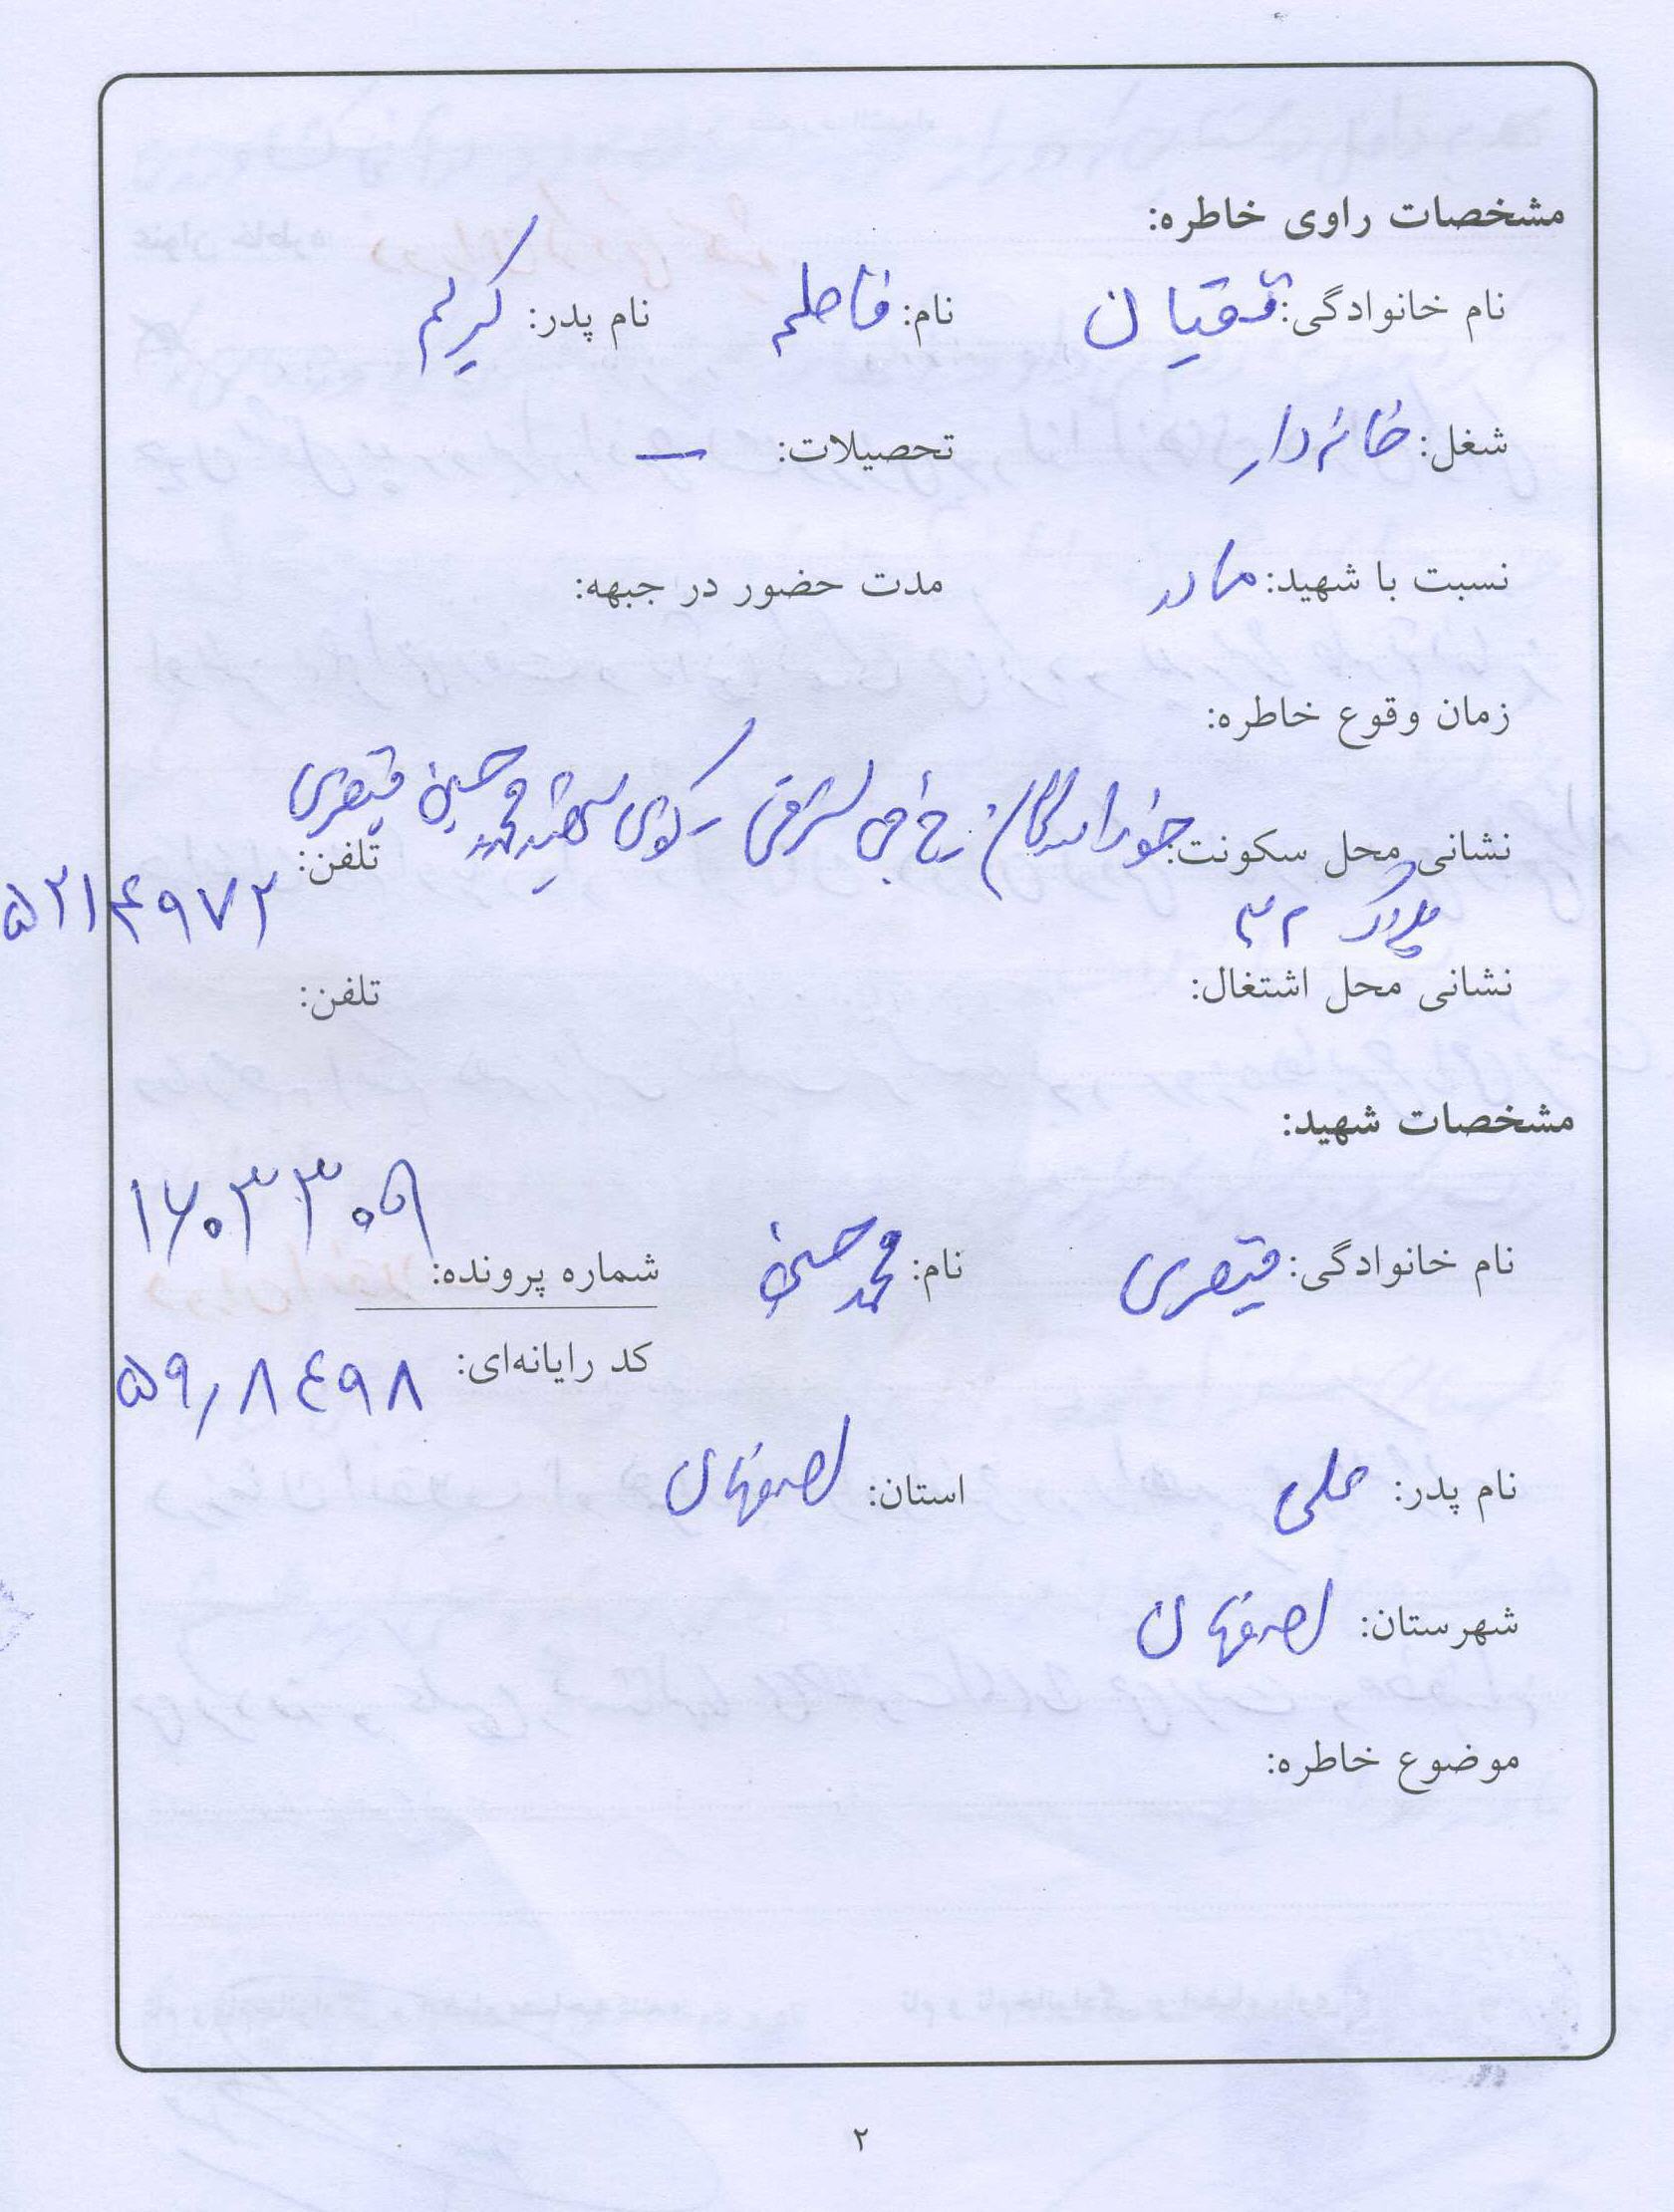 مشخصات راوی خاطره:
نام خانوادگی: تقیان نام: فاطمه نام پدر: کریم
شغل: خانه‌دار تحصیلات: —
نسبت با شهید: مادر مدت حضور در جبهه:
زمان وقوع خاطره:
نشانی محل سکونت: خوراسگان شرقی کوی شهید محمد حسین قیصری تلفن: ۵۲۱۴۹۷۲
پلاک ۳۲
نشانی محل اشتغال: تلفن:
مشخصات شهید:
نام خانوادگی: قیصری نام: محمد حسین شماره پرونده: ۱۶۰۳۳۰۵۹
کد رایانه‌ای: ۵۹۰۸۴۹۸
نام پدر: علی استان: اصفهان
شهرستان: اصفهان
موضوع خاطره:
۲